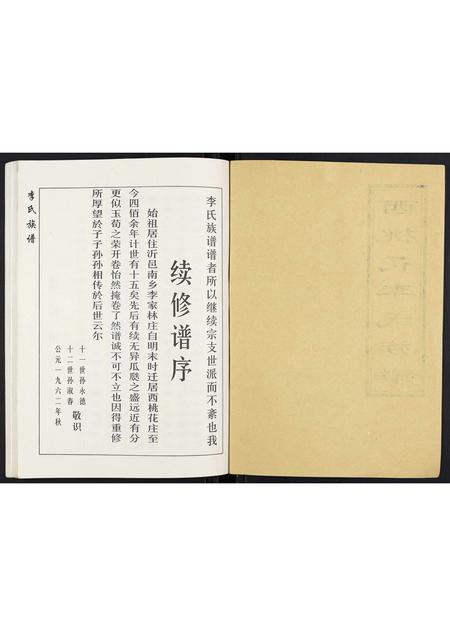 李氏族谱谱者所以继续宗支世派而不紊也我
续修谱序
始祖居住沂邑南乡李家林庄自明末时迁居西桃花庄至
今四佰余年计世有十五矣先后有续无异瓜瓞之盛远近有分
更似玉荀之荣开卷怡然掩卷了然谱诚不可不立也因得重修
所厚望於子子孙孙相传於后世云尔
十一世孙永德
十二世孙淑春
敬识
公元一九六二年秋
李氏族谱